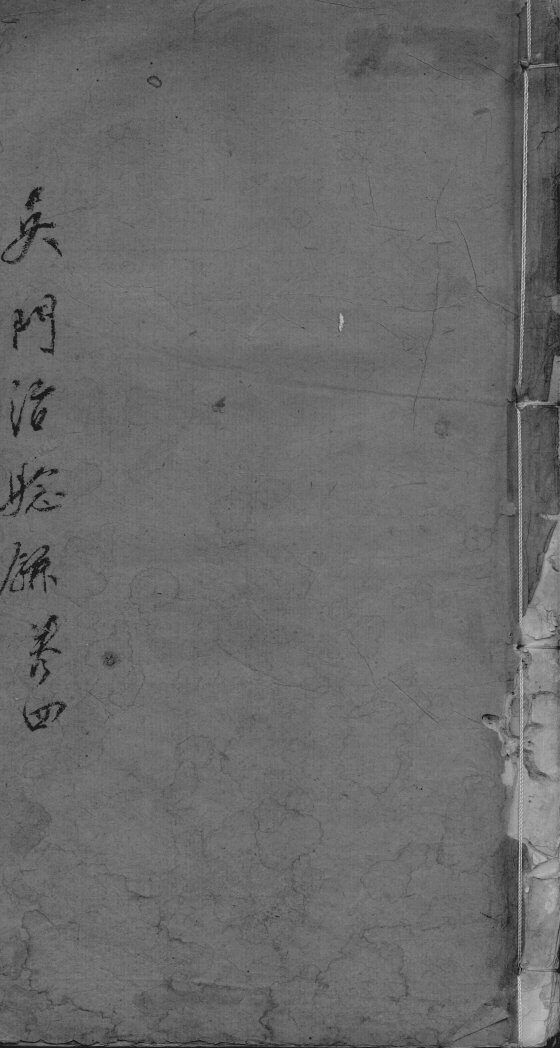 吳門治驗錄卷四